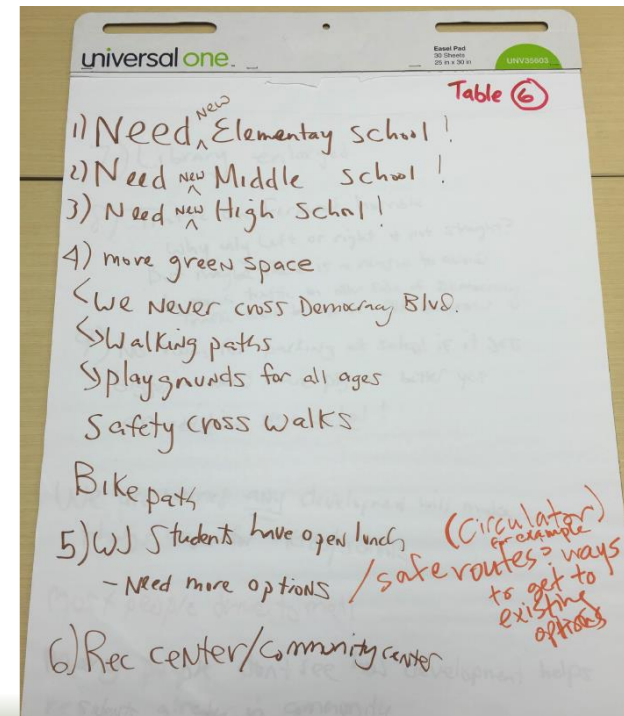 universal one
Easel Pad
30 Sheets
25 in x 30 in
UNV35603
Table 6
1) Need ^New Elementay school!
2) Need ^New Middle school!
3) Need ^New High School!
4) more green space
We Never cross Democracy Blvd.
Walking paths
playgrounds for all ages
Safety cross walks
Bike path
5) WJ Students have open lunch
- Need more options / safe routes = ways
(Circulator)
for example
to get to
existing
options
6) Rec center/community center